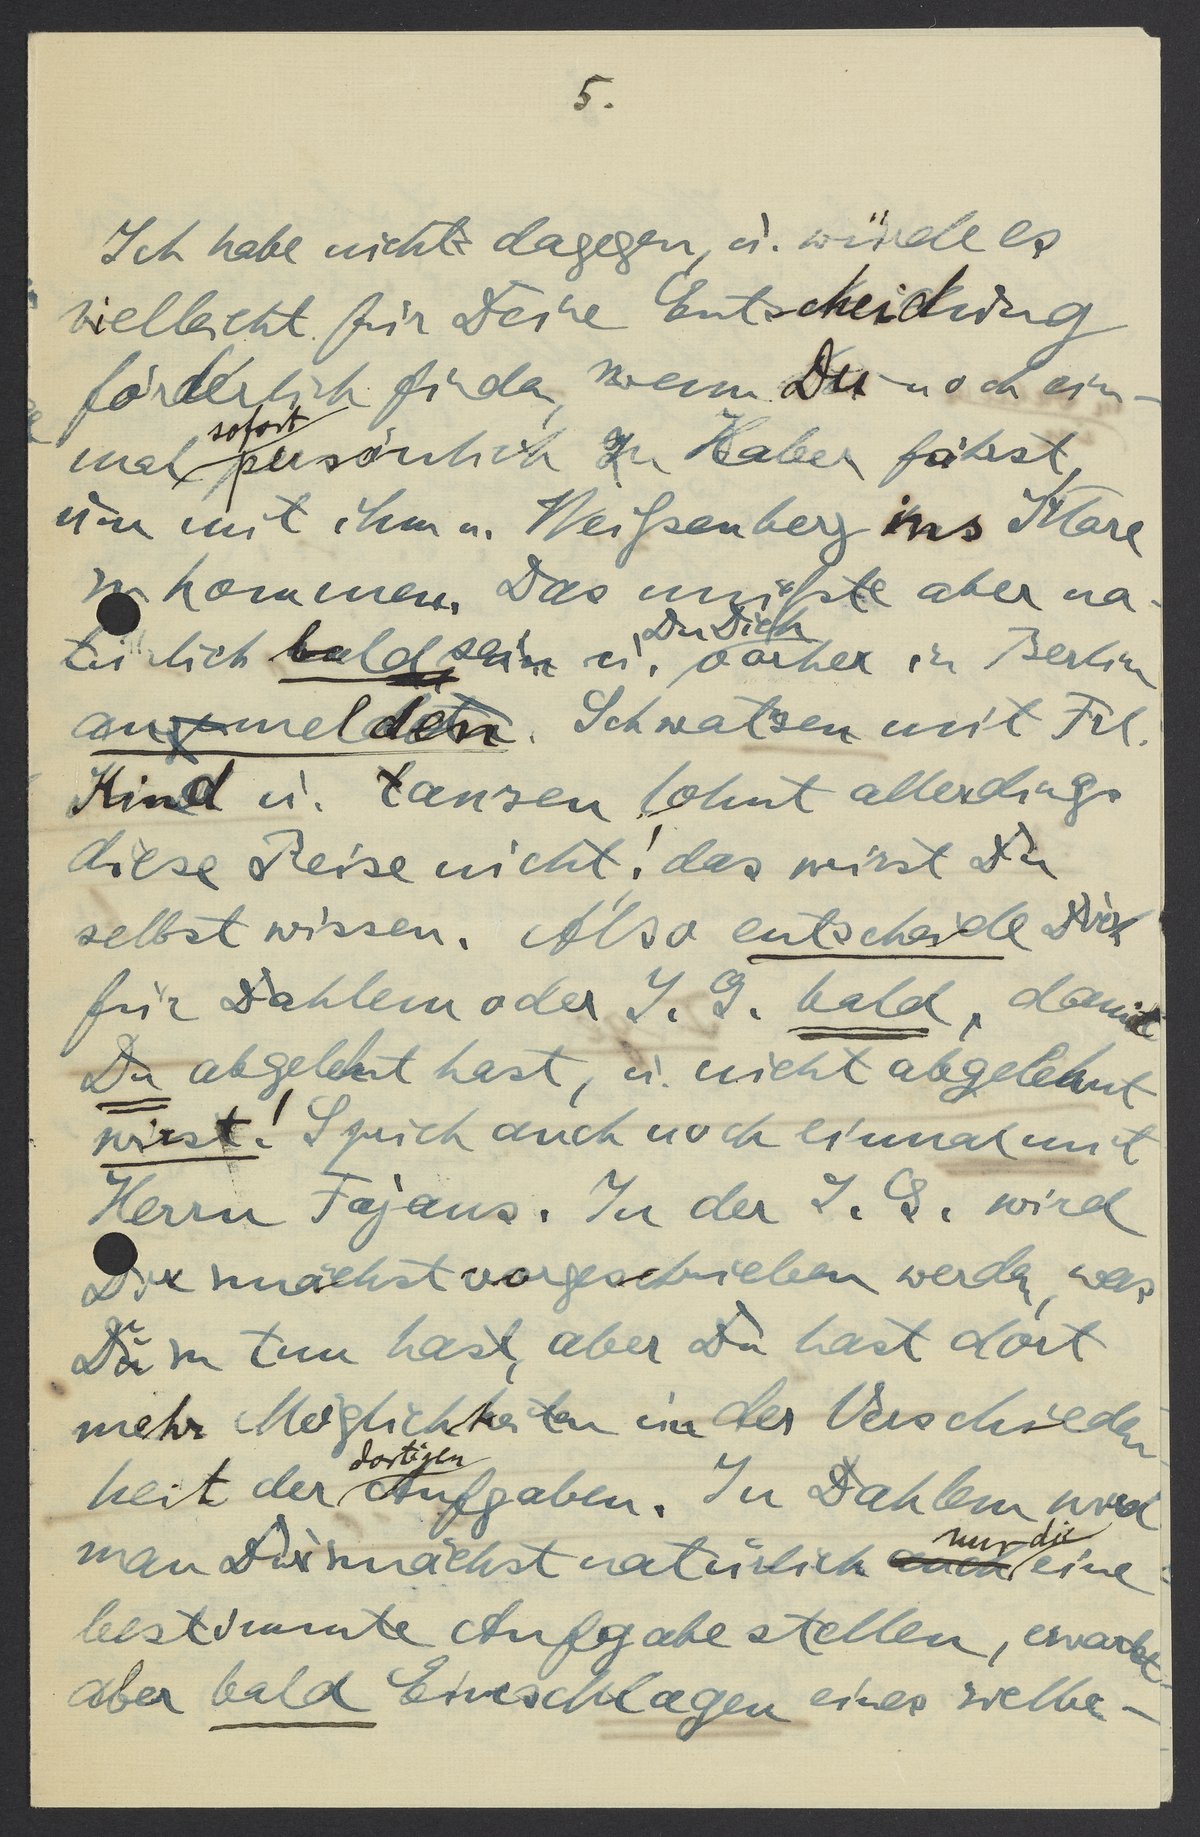 5.
Ich habe nichts dagegen, u. würde es
vielleicht für Deine Entscheidung
förderlich finden, wenn Du noch ein-
mal sofort persönlich zu Haber fährst,
um mit ihm u. Weißenberg ins Klare
zu kommen. Das müßte aber na-
türlich bald sein u. Du Dich vorher in Berlin
anmelden. Schwatzen mit Frl.
Kind u. tanzen lohnt allerdings
diese Reise nicht! das wirst Du
selbst wissen. Also entscheide Dich
für Dahlem oder I. G. bald, damit
Du abgelehnt hast, u. nicht abgelehnt
wirst! Sprich auch noch einmal mit
Herrn Fajans. In der I. G. wird
Dir zunächst vorgeschrieben werden, was
Du zu tun hast, aber Du hast dort
mehr Möglichkeiten in der Verschieden-
heit der dortigen Aufgaben. In Dahlem wird
man Dir zunächst natürlich auch nur die eine
bestimmte Aufgabe stellen, erwartet
aber bald Einschlagen eines selbe-